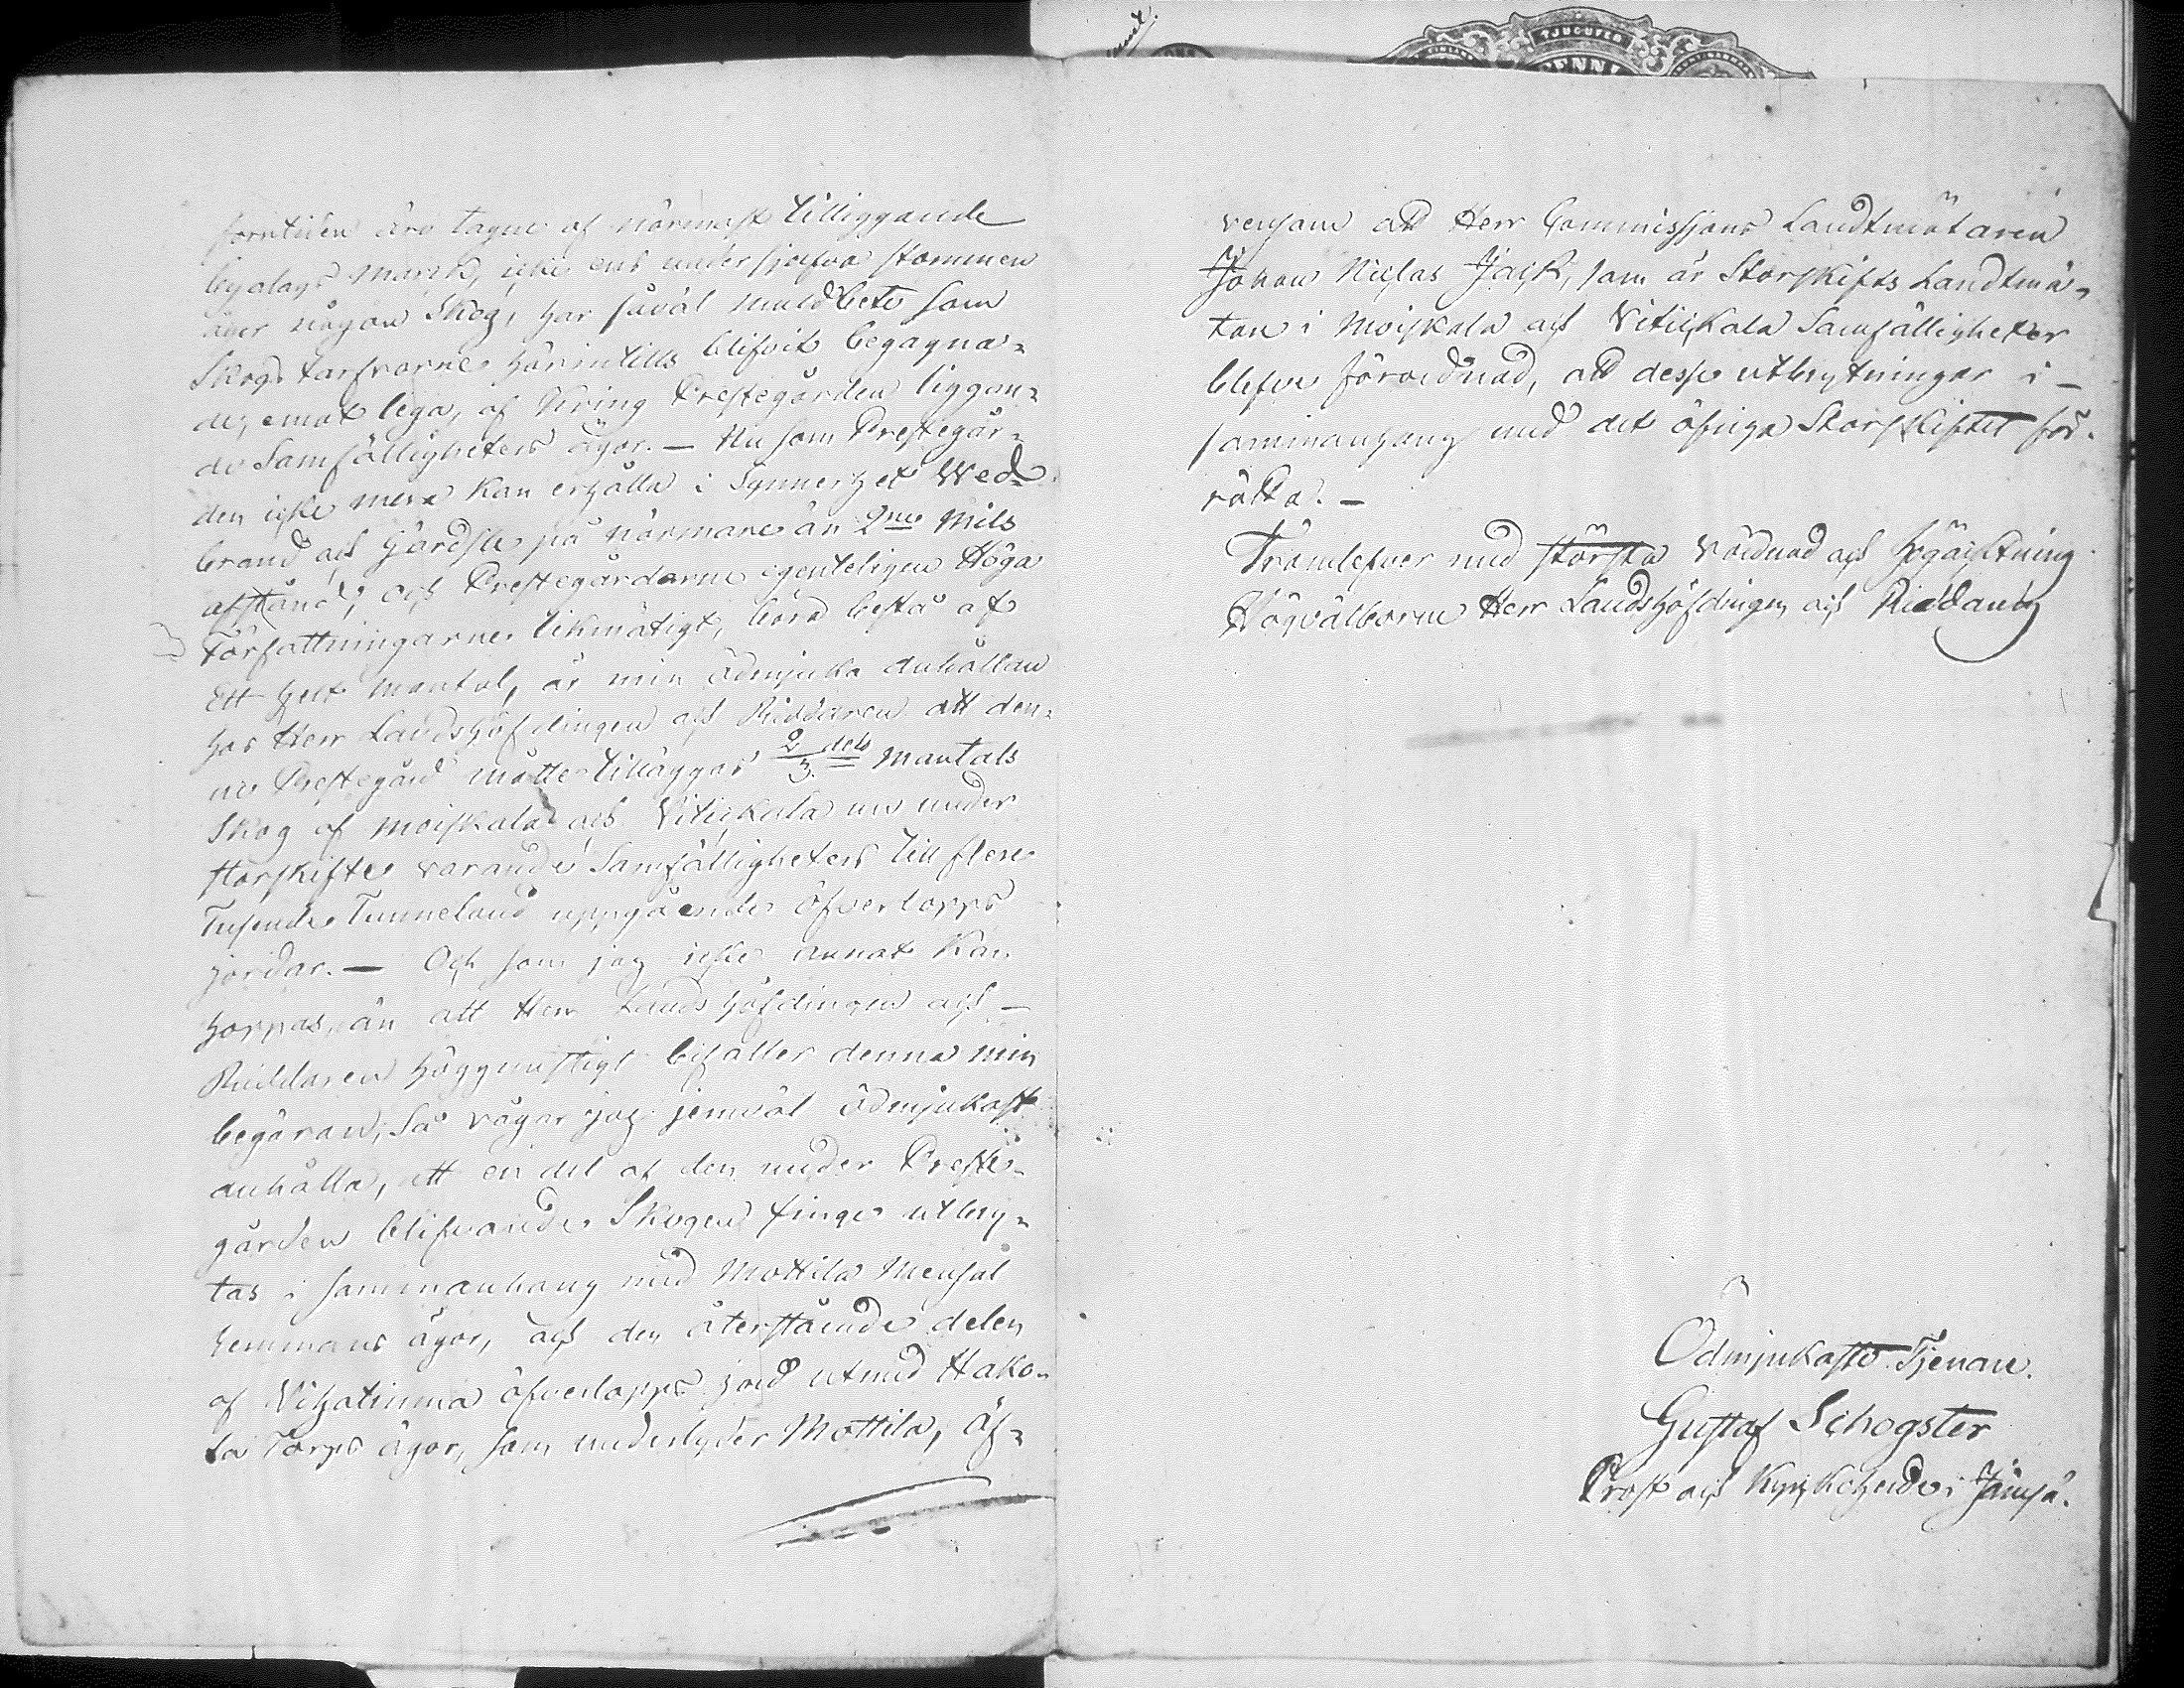 forntiden äro tagne af närmast tilliggande
byalags mark, icke ens under sjelfva stommen
äger någon Skog, har såväl muldbete som
Skogs tarfvorne härintills blifvit begagna-
de, emot lega, af kring Prestegården liggan-
de Samfälligheters ägor. — Nu som Prestegår-
den icke mera kan erhålla i Synnerhet Wed-
brand och Gärdsle på närmare än 2ne Mils
afstånd, och Prestegårdarne egenteligen Höga
Författningarne likmätigt, böra bestå af
Ett helt mantal, är min ödmjuka anhållan
hos Herr Landshöfdingen och Riddaren att den-
ne Prestegård måtte tilläggas 2/3 dels mantals
Skog af Moiskala och Vitickala nu under
storskifte varande Samfälligheters till flere
Tusende Tunneland uppgående öfverlopps
jordar. — Och som jag icke annat kan
hoppas, än att Herr Landshöfdingen och —
Riddaren höggunstigt bifaller denna min
begäran; Så vågar jag jemväl ödmjukast
anhålla, att en del af den under Preste-
gården blifvande Skogen finge utbry-
tas i sammanhang med Mottila Mensal
hemmans ägor, och den återstående delen
af Vihatinma öfverlopps jord utmed Hako-
la Torps ägor, som underlyder Mottila, Äf-
TJUGUFEM
PENNI
vensom att Herr Commissions Landtmätaren
Johan Niclas Jack, som är Storskifts Landtmä-
tare i Moiskala och Vitickala Samfälligheter
blefve förordnad, att desse utbrytningar i —
sammanhang med det öfriga Storskiftet för-
rätta. —
Framlefver med största vördnad och högacktning
Högvälborne Herr Landshöfdingen och Riddarens
Ödmjukaste Tjenare.
Gustaf Schogster
Prost och Kyrkoherde i Jämsä.